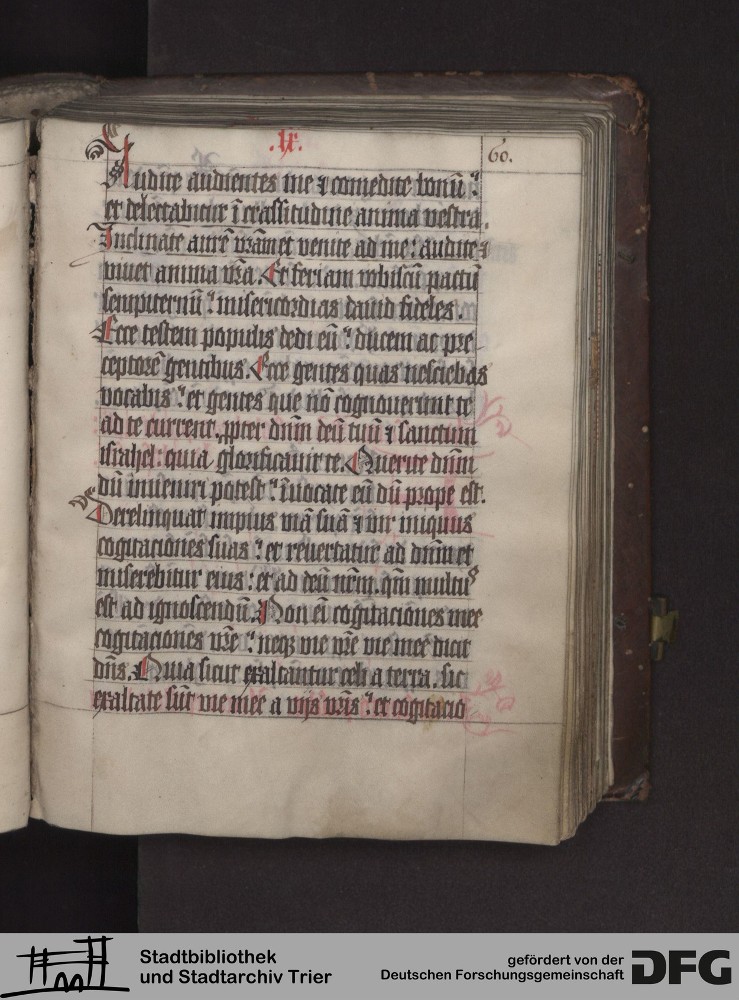 .lx.
60.
Audite audientes me ⁊ comedite bonū :
et delectabitur ī crassitudine anima vestra.
Inclinate aurē vrām et venite ad me : audite ⁊
viuet anima vrā. Et feriam vobiscū pactū
sempiternū : misericordias dauid fideles.
Ecce testem populis dedi eū : ducem ac pre
ceptorē gentibus. Ecce gentes quas nesciebas
vocabis : et gentes que nō cognouerunt te
ad te current. ꝓpter dnm̄ deū tuū ⁊ sanctum
israhel : quia glorificauit te. Querite dnm̄
dū inueniri potest : īuocate eū dū prope est.
Derelinquat impius viā suā ⁊ vir iniquus
cogitaciones suas : et reuertatur ad dnm̄ et
miserebitur eius : et ad deū nrm̄. qm̄ multꝰ
est ad ignoscendū. Non eī cogitaciones mee
cogitaciones vrē : neqꝫ vie vrē vie mee dicit
dn̄s. Quia sicut exaltantur celi a terra. sic
exaltate sūt vie mee a vijs vrīs : et cogitacio
Stadtbibliothek
und Stadtarchiv Trier
gefördert von der
Deutschen Forschungsgemeinschaft
DFG